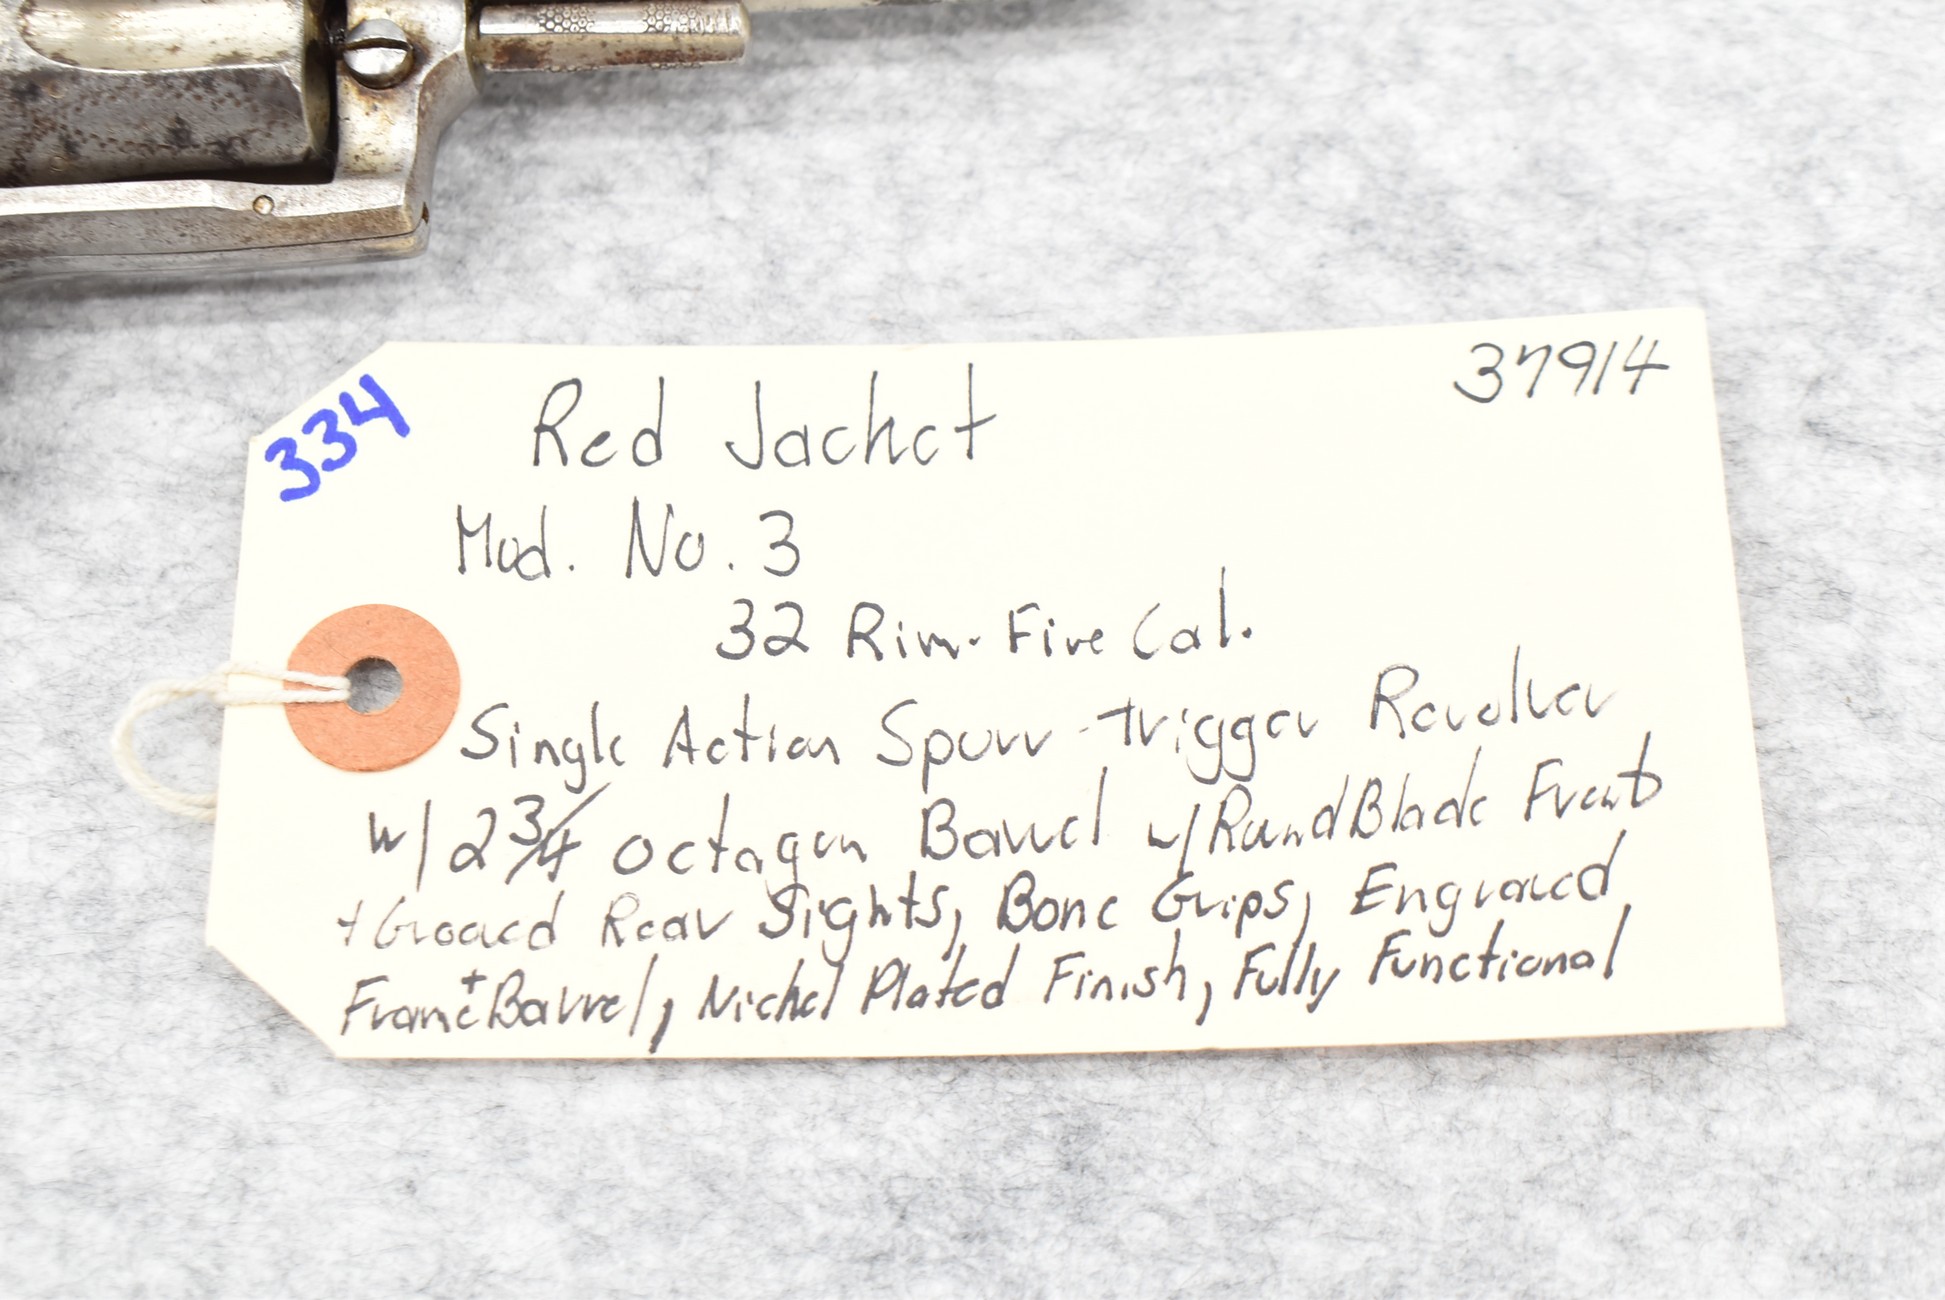 334
37914
Red Jacket
Mod. No. 3
32 Rim-Fire Cal.
Single Action Spurr-trigger Revolver
w/ 2 3/4 octagon Barrel w/Round Blade Front
+ Grooved Rear Sights, Bone Grips, Engraved
Frame + Barrel, Nickel Plated Finish, Fully Functional